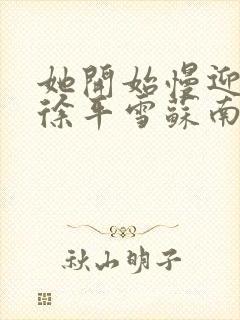 她開始慢迎
徐平雪蘇南
秋山明子